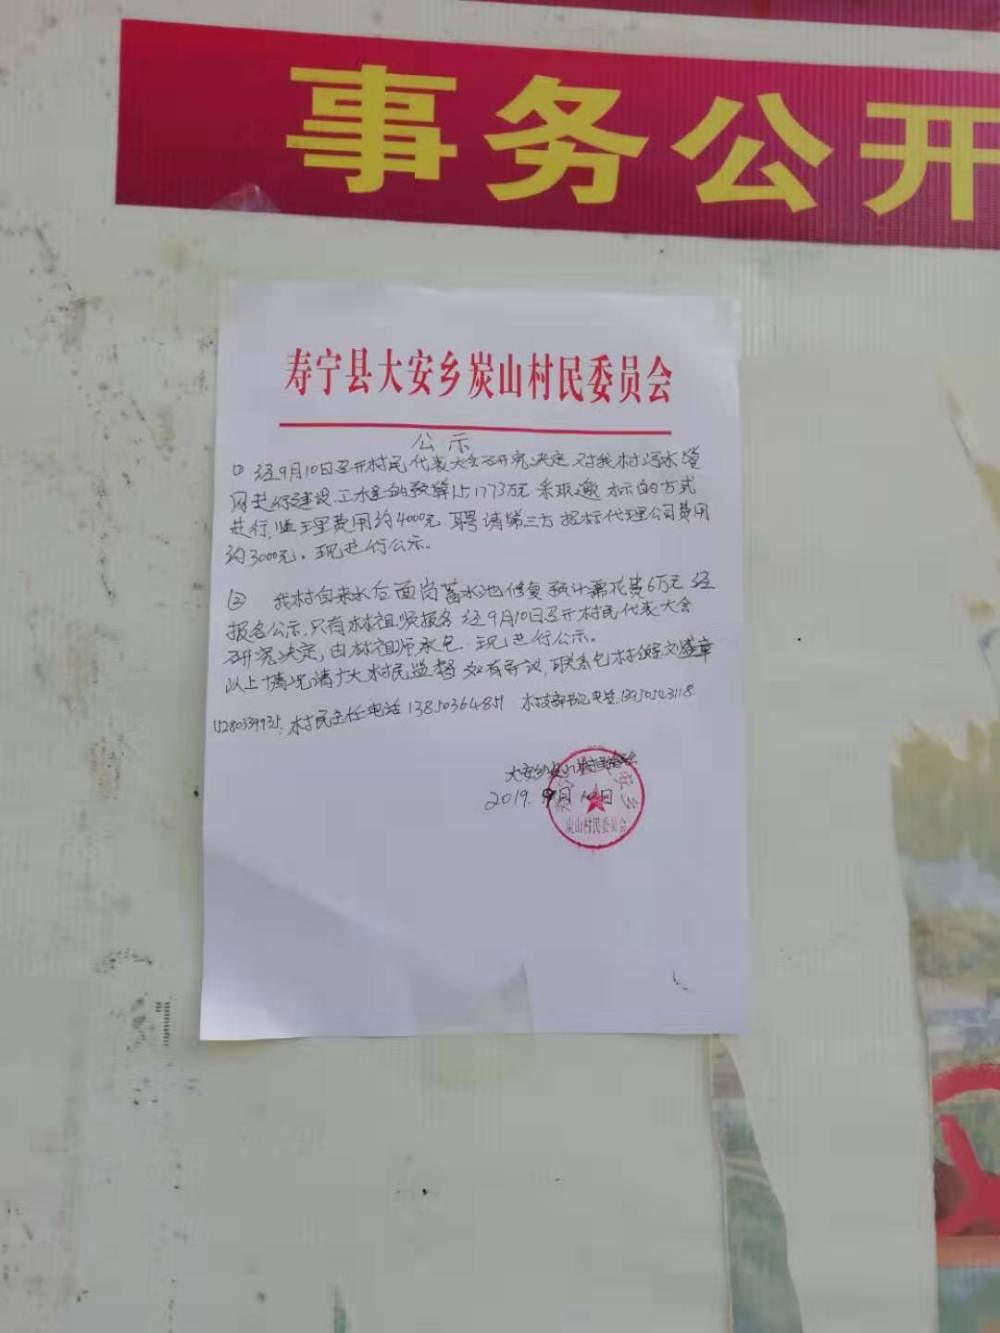 事务公开
寿宁县大安乡炭山村民委员会
公示
① 经9月10日召开村民代表大会研究决定,对我村污水管
网进行建设,工水量的预算151773万元采取邀标的方式
进行,监理费用约4000元,聘请第三方招标代理公司费用
约3000元。现进行公示。
② 我村自来水后面岗蓄水池修复预计需花费6万元经
报名公示,只有林祖师报名经9月10日召开村民代表大会
研究决定,由林祖师承包.现进行公示。
以上情况请广大村民监督如有异议,联系包村
村民主任电话13850364851 村支部书记电话
2019.9月10日
炭山村民委员会